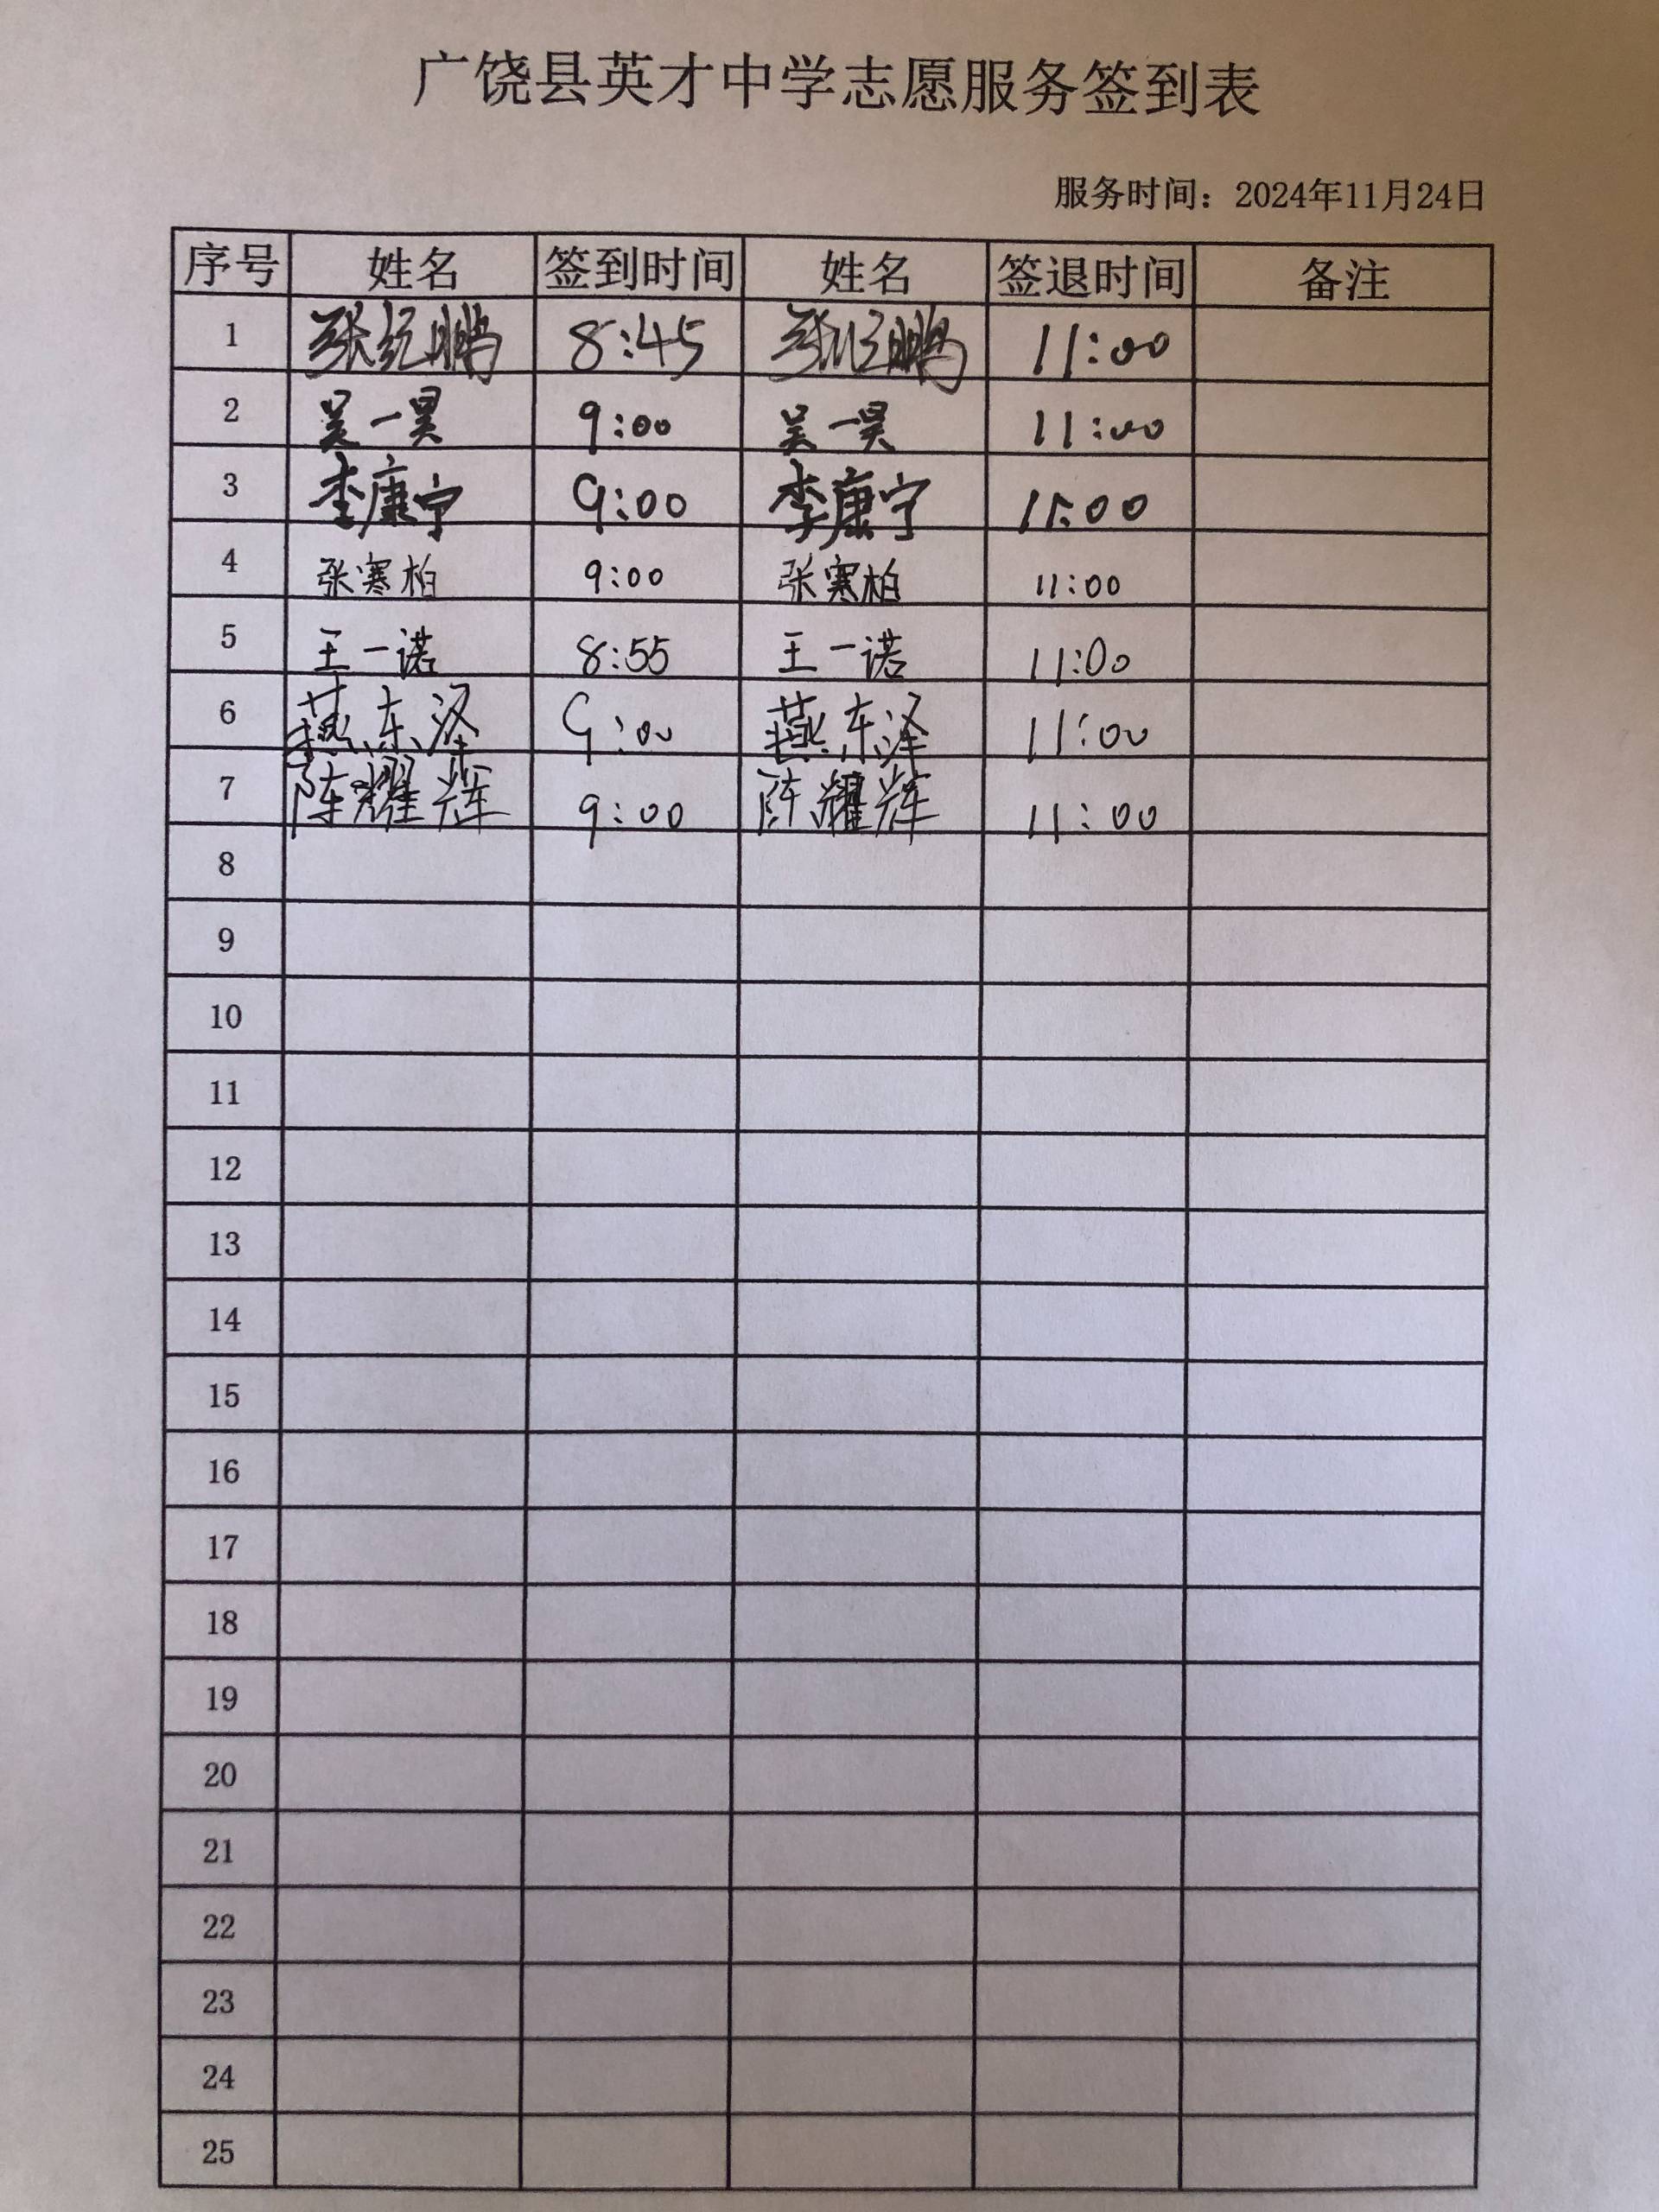 广饶县英才中学志愿服务签到表
服务时间：2024年11月24日
序号 姓名 签到时间 姓名 签退时间 备注
1 张纪鹏 8:45 张纪鹏 11:00
2 吴一昊 9:00 吴一昊 11:00
3 李康宁 9:00 李康宁 11:00
4 张寒柏 9:00 张寒柏 11:00
5 王一诺 8:55 王一诺 11:00
6 燕东泽 9:00 燕东泽 11:00
7 陈耀辉 9:00 陈耀辉 11:00
8
9
10
11
12
13
14
15
16
17
18
19
20
21
22
23
24
25